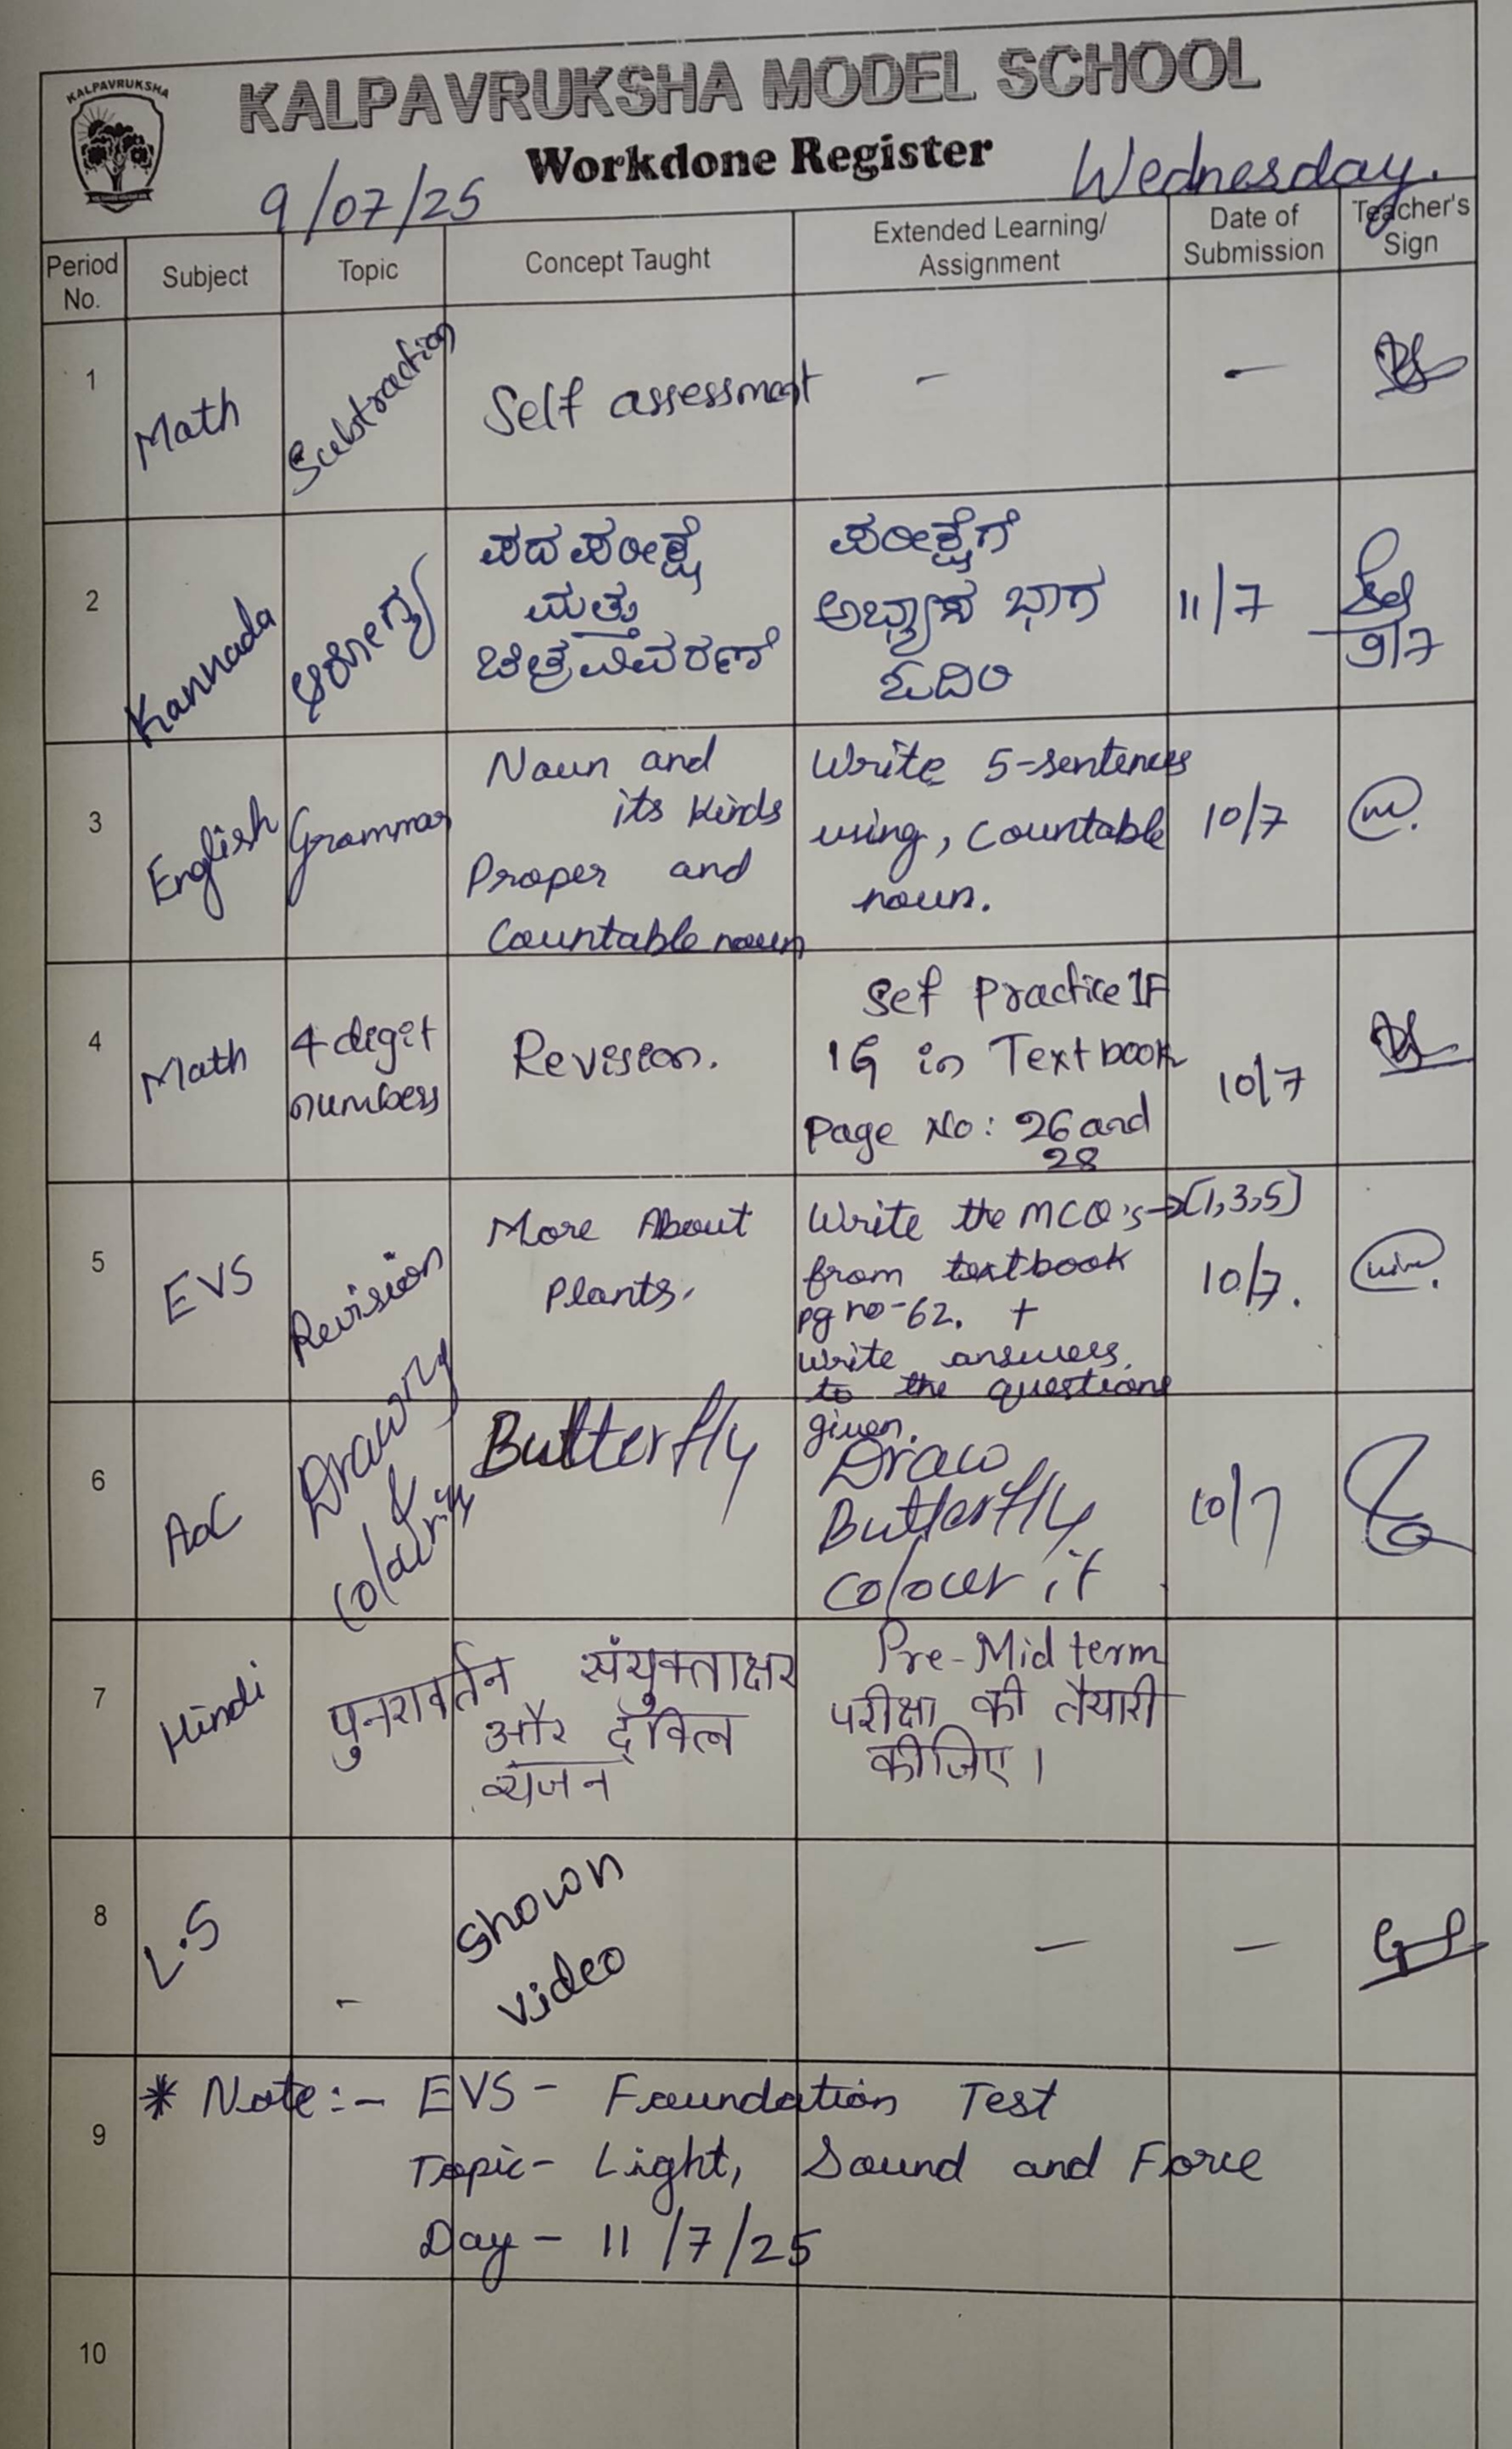 KALPAVRUKSHA
KALPAVRUKSHA MODEL SCHOOL
Workdone Register
9/07/25
Wednesday.
Period No.
Subject
Topic
Concept Taught
Extended Learning/
Assignment
Date of
Submission
Teacher's
Sign
1
Math
Subtraction
Self assessment
-
-
2
Kannada
ಆರೋಗ್ಯ
ಪದ ಪರೀಕ್ಷೆ
ಮತ್ತು
ಚಿತ್ರವಿವರಣೆ
ಪರೀಕ್ಷೆಗೆ
ಅಭ್ಯಾಸ ಭಾಗ
ಓದಿರಿ
11/7
9/7
3
English
Grammar
Noun and
its kinds
Proper and
Countable noun
Write 5-sentences
using, countable
noun.
10/7
4
Math
4 digit
numbers
Revision.
Sef Practice 1F
1G in Textbook
Page No: 26 and
28
10/7
5
EVS
Revision
More About
Plants.
Write the MCQ's→[1,3,5]
from textbook
pg no-62. +
Write answers
to the questions
given.
10/7.
6
AoC
Drawing
&
colouring
Butterfly
Draw
Butterfly
colour it
10/7
7
Hindi
पुनरावर्तन
संयुक्ताक्षर
और द्वित्व
व्यंजन
Pre-Mid term
परीक्षा की तैयारी
कीजिए।
8
L.S
-
Shown
video
-
-
9
* Note:- EVS - Foundation Test
Topic- Light, Sound and Force
Day - 11/7/25
10